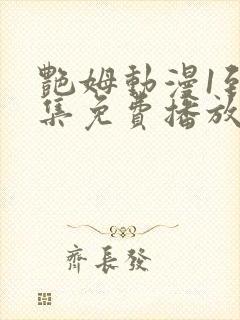 艷姆動漫1至
集免費播放
齊長發